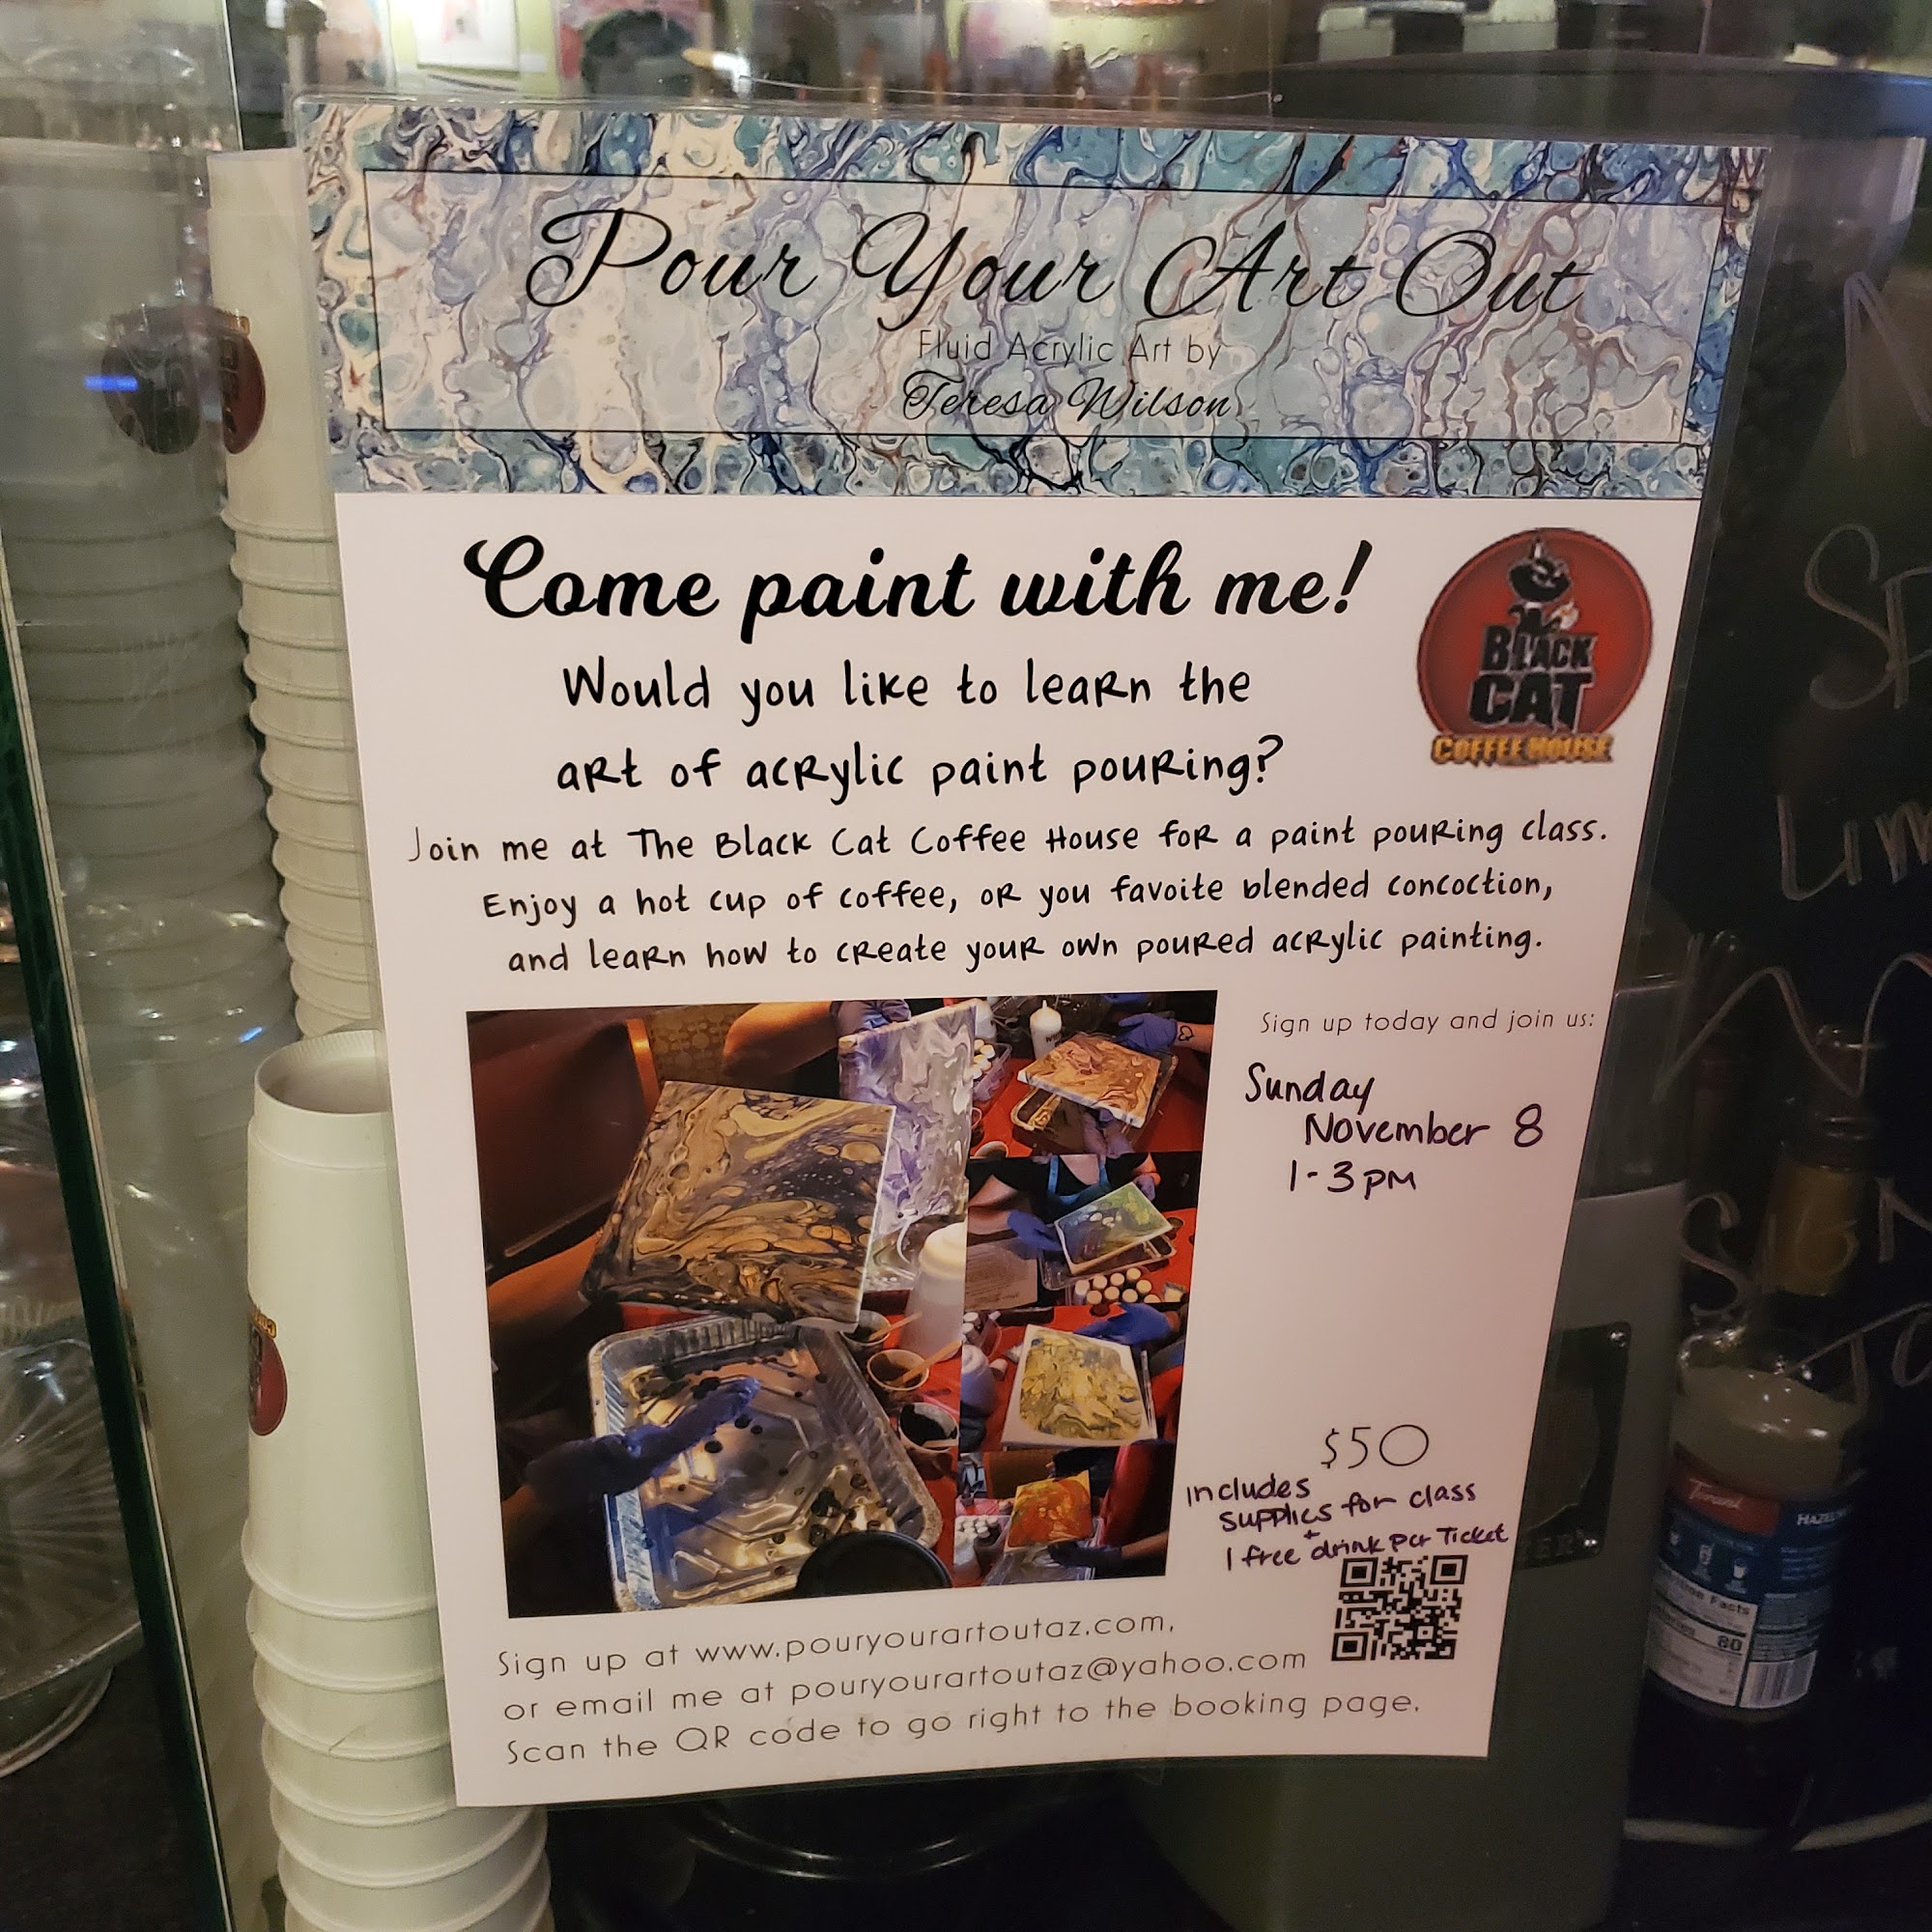 Pour Your Art Out
Fluid Acrylic Art by
Teresa Wilson
Come paint with me!
Would you like to learn the
art of acrylic paint pouring?
BLACK
CAT
COFFEE HOUSE
Join me at The Black Cat Coffee House for a paint pouring class.
Enjoy a hot cup of coffee, or you favoite blended concoction,
and learn how to create your own poured acrylic painting.
Sign up today and join us:
Sunday
November 8
1-3pm
$50
includes
supplies for class
+
1 free drink per Ticket
Sign up at www.pouryourartoutaz.com,
or email me at pouryourartoutaz@yahoo.com
Scan the QR code to go right to the booking page.
Torani
80